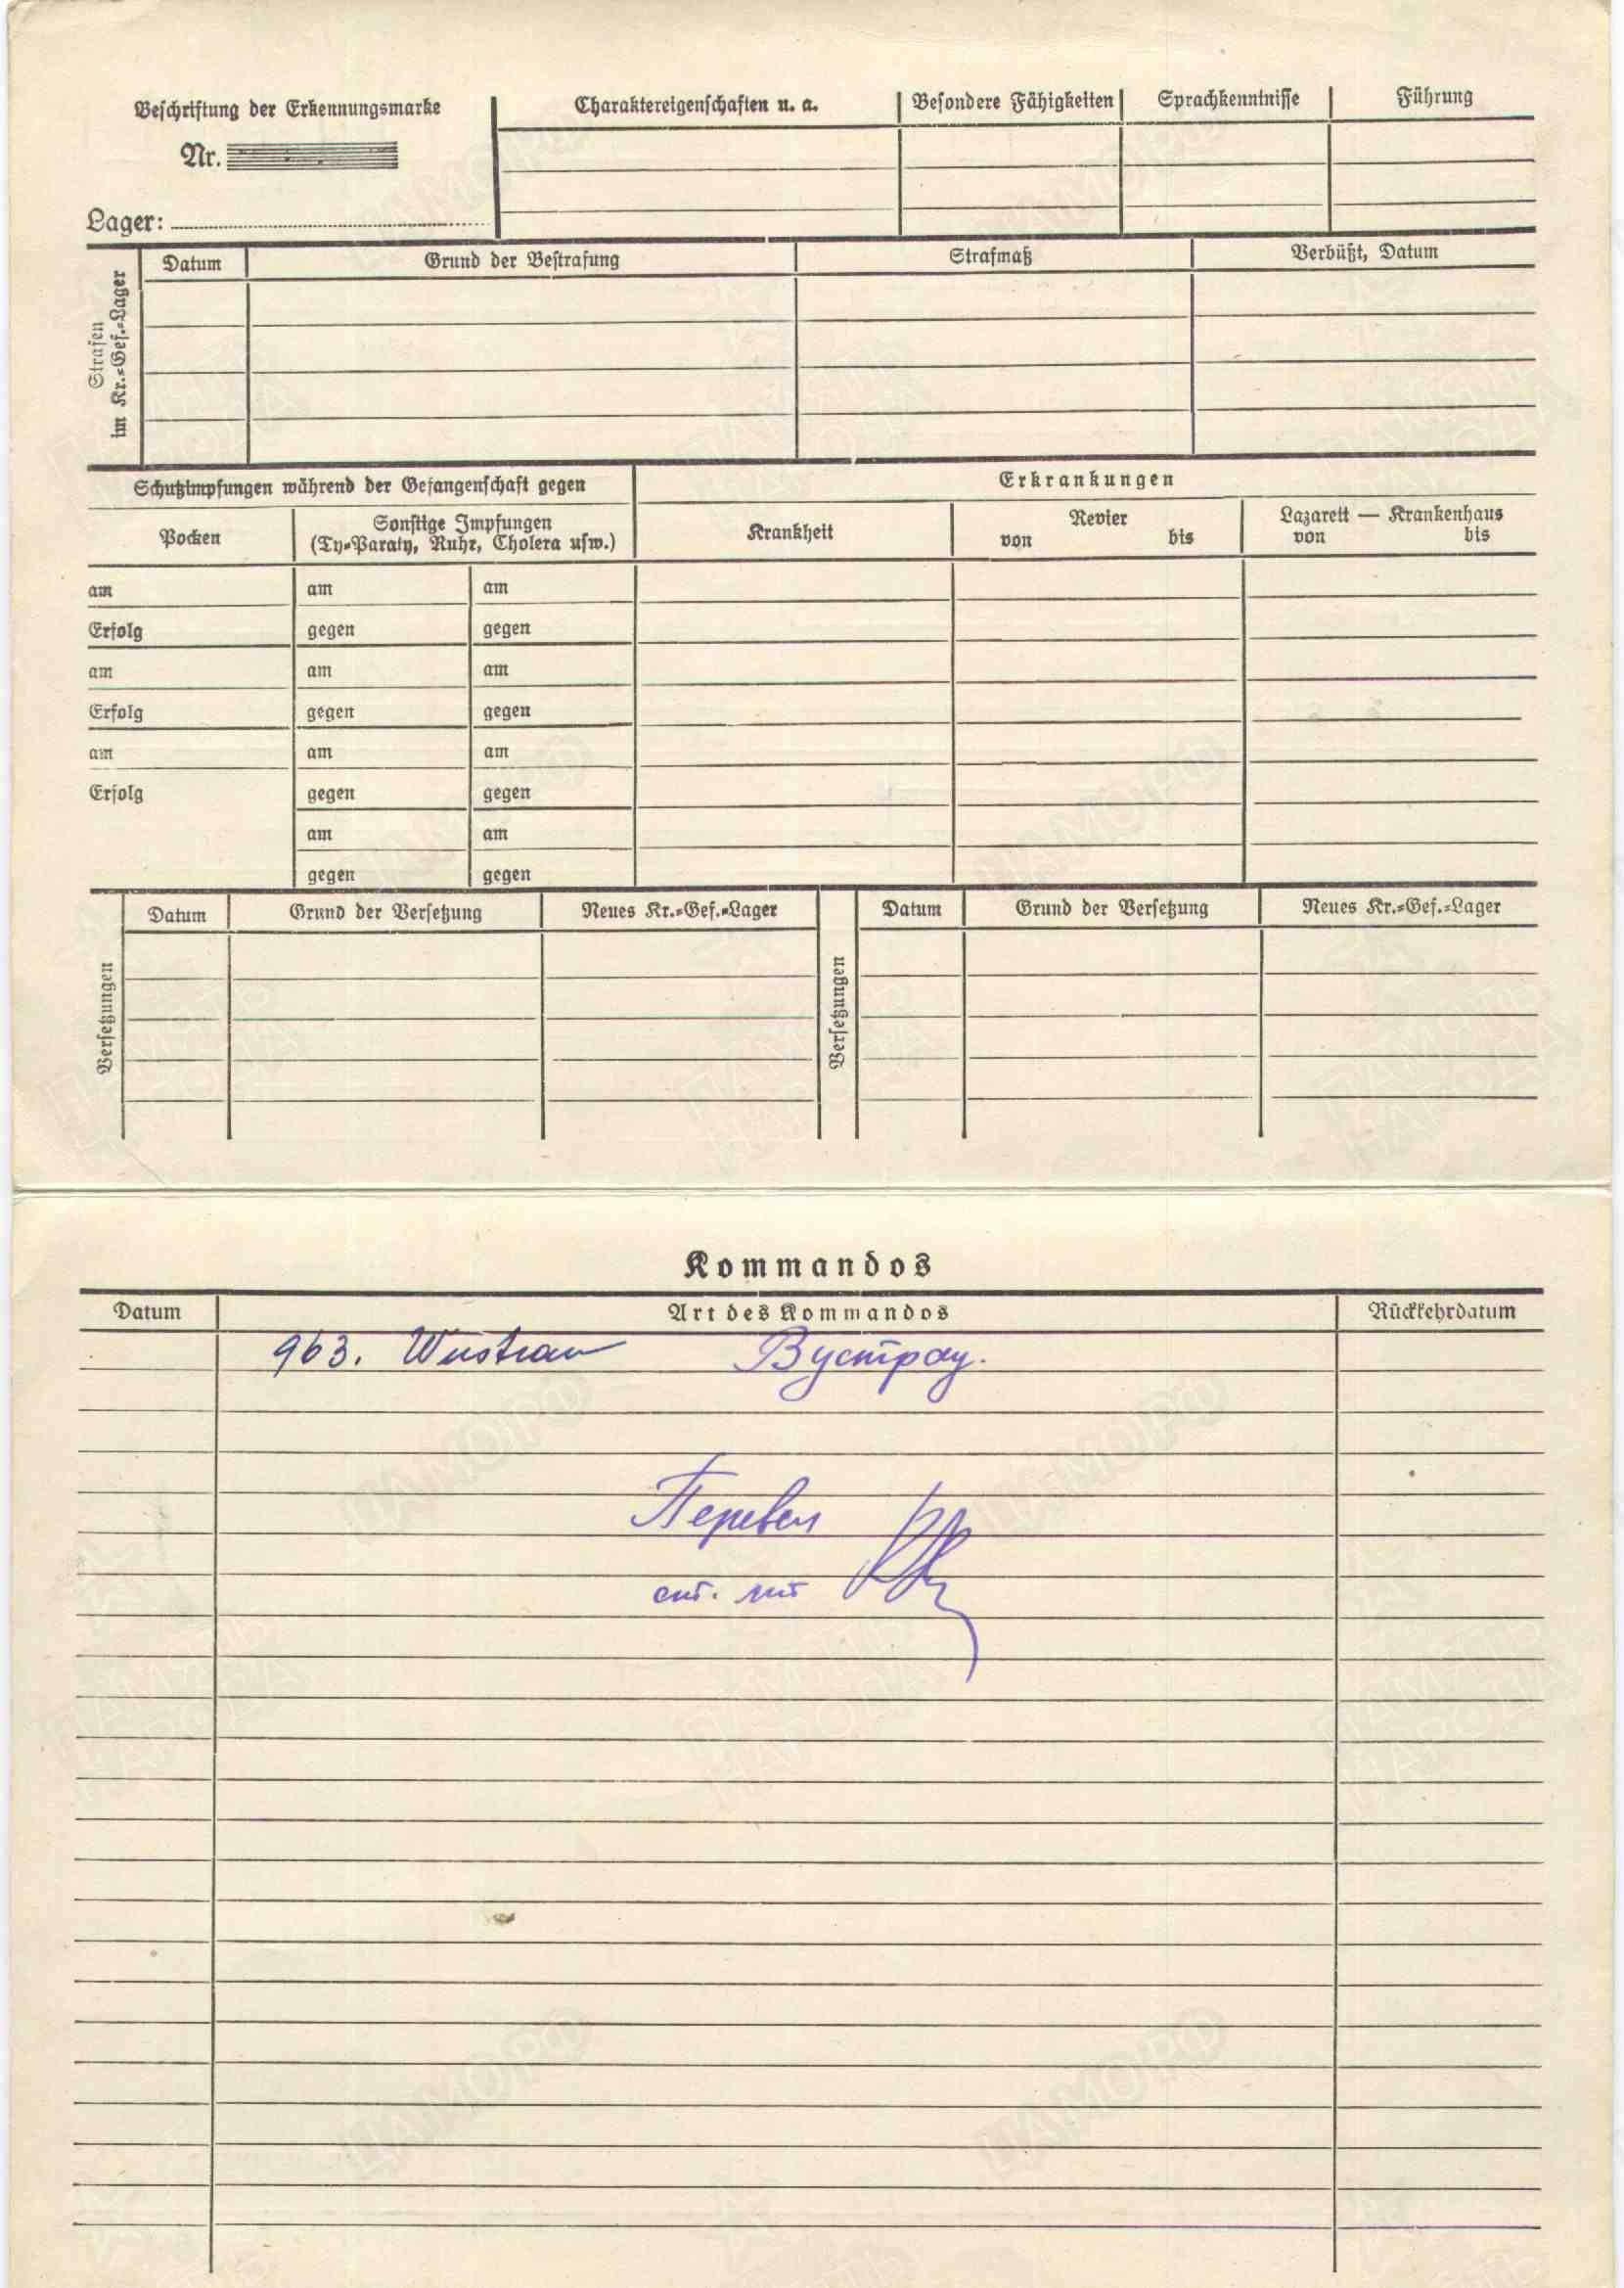 Beschriftung der Erkennungsmarke
Nr.
Lager:
Charaktereigenschaften u. a.
Besondere Fähigkeiten
Sprachkenntnisse
Führung
Strafen im Kr.=Gef.=Lager
Datum
Grund der Bestrafung
Strafmaß
Verbüßt, Datum
Schutzimpfungen während der Gefangenschaft gegen
Erkrankungen
Pocken
Sonstige Impfungen
(Ty=Paraty, Ruhr, Cholera usw.)
Krankheit
Revier
von bis
Lazarett — Krankenhaus
von bis
am am am
Erfolg gegen gegen
am am am
Erfolg gegen gegen
am am am
Erfolg gegen gegen
am am
gegen gegen
Versetzungen
Datum
Grund der Versetzung
Neues Kr.=Gef.=Lager
Versetzungen
Datum
Grund der Versetzung
Neues Kr.=Gef.=Lager
Kommandos
Datum
Art des Kommandos
Rückkehrdatum
963. Wustrau Вустрау.
Перевел
ПАМЯТЬ НАРОДА
ЦАМО РФ